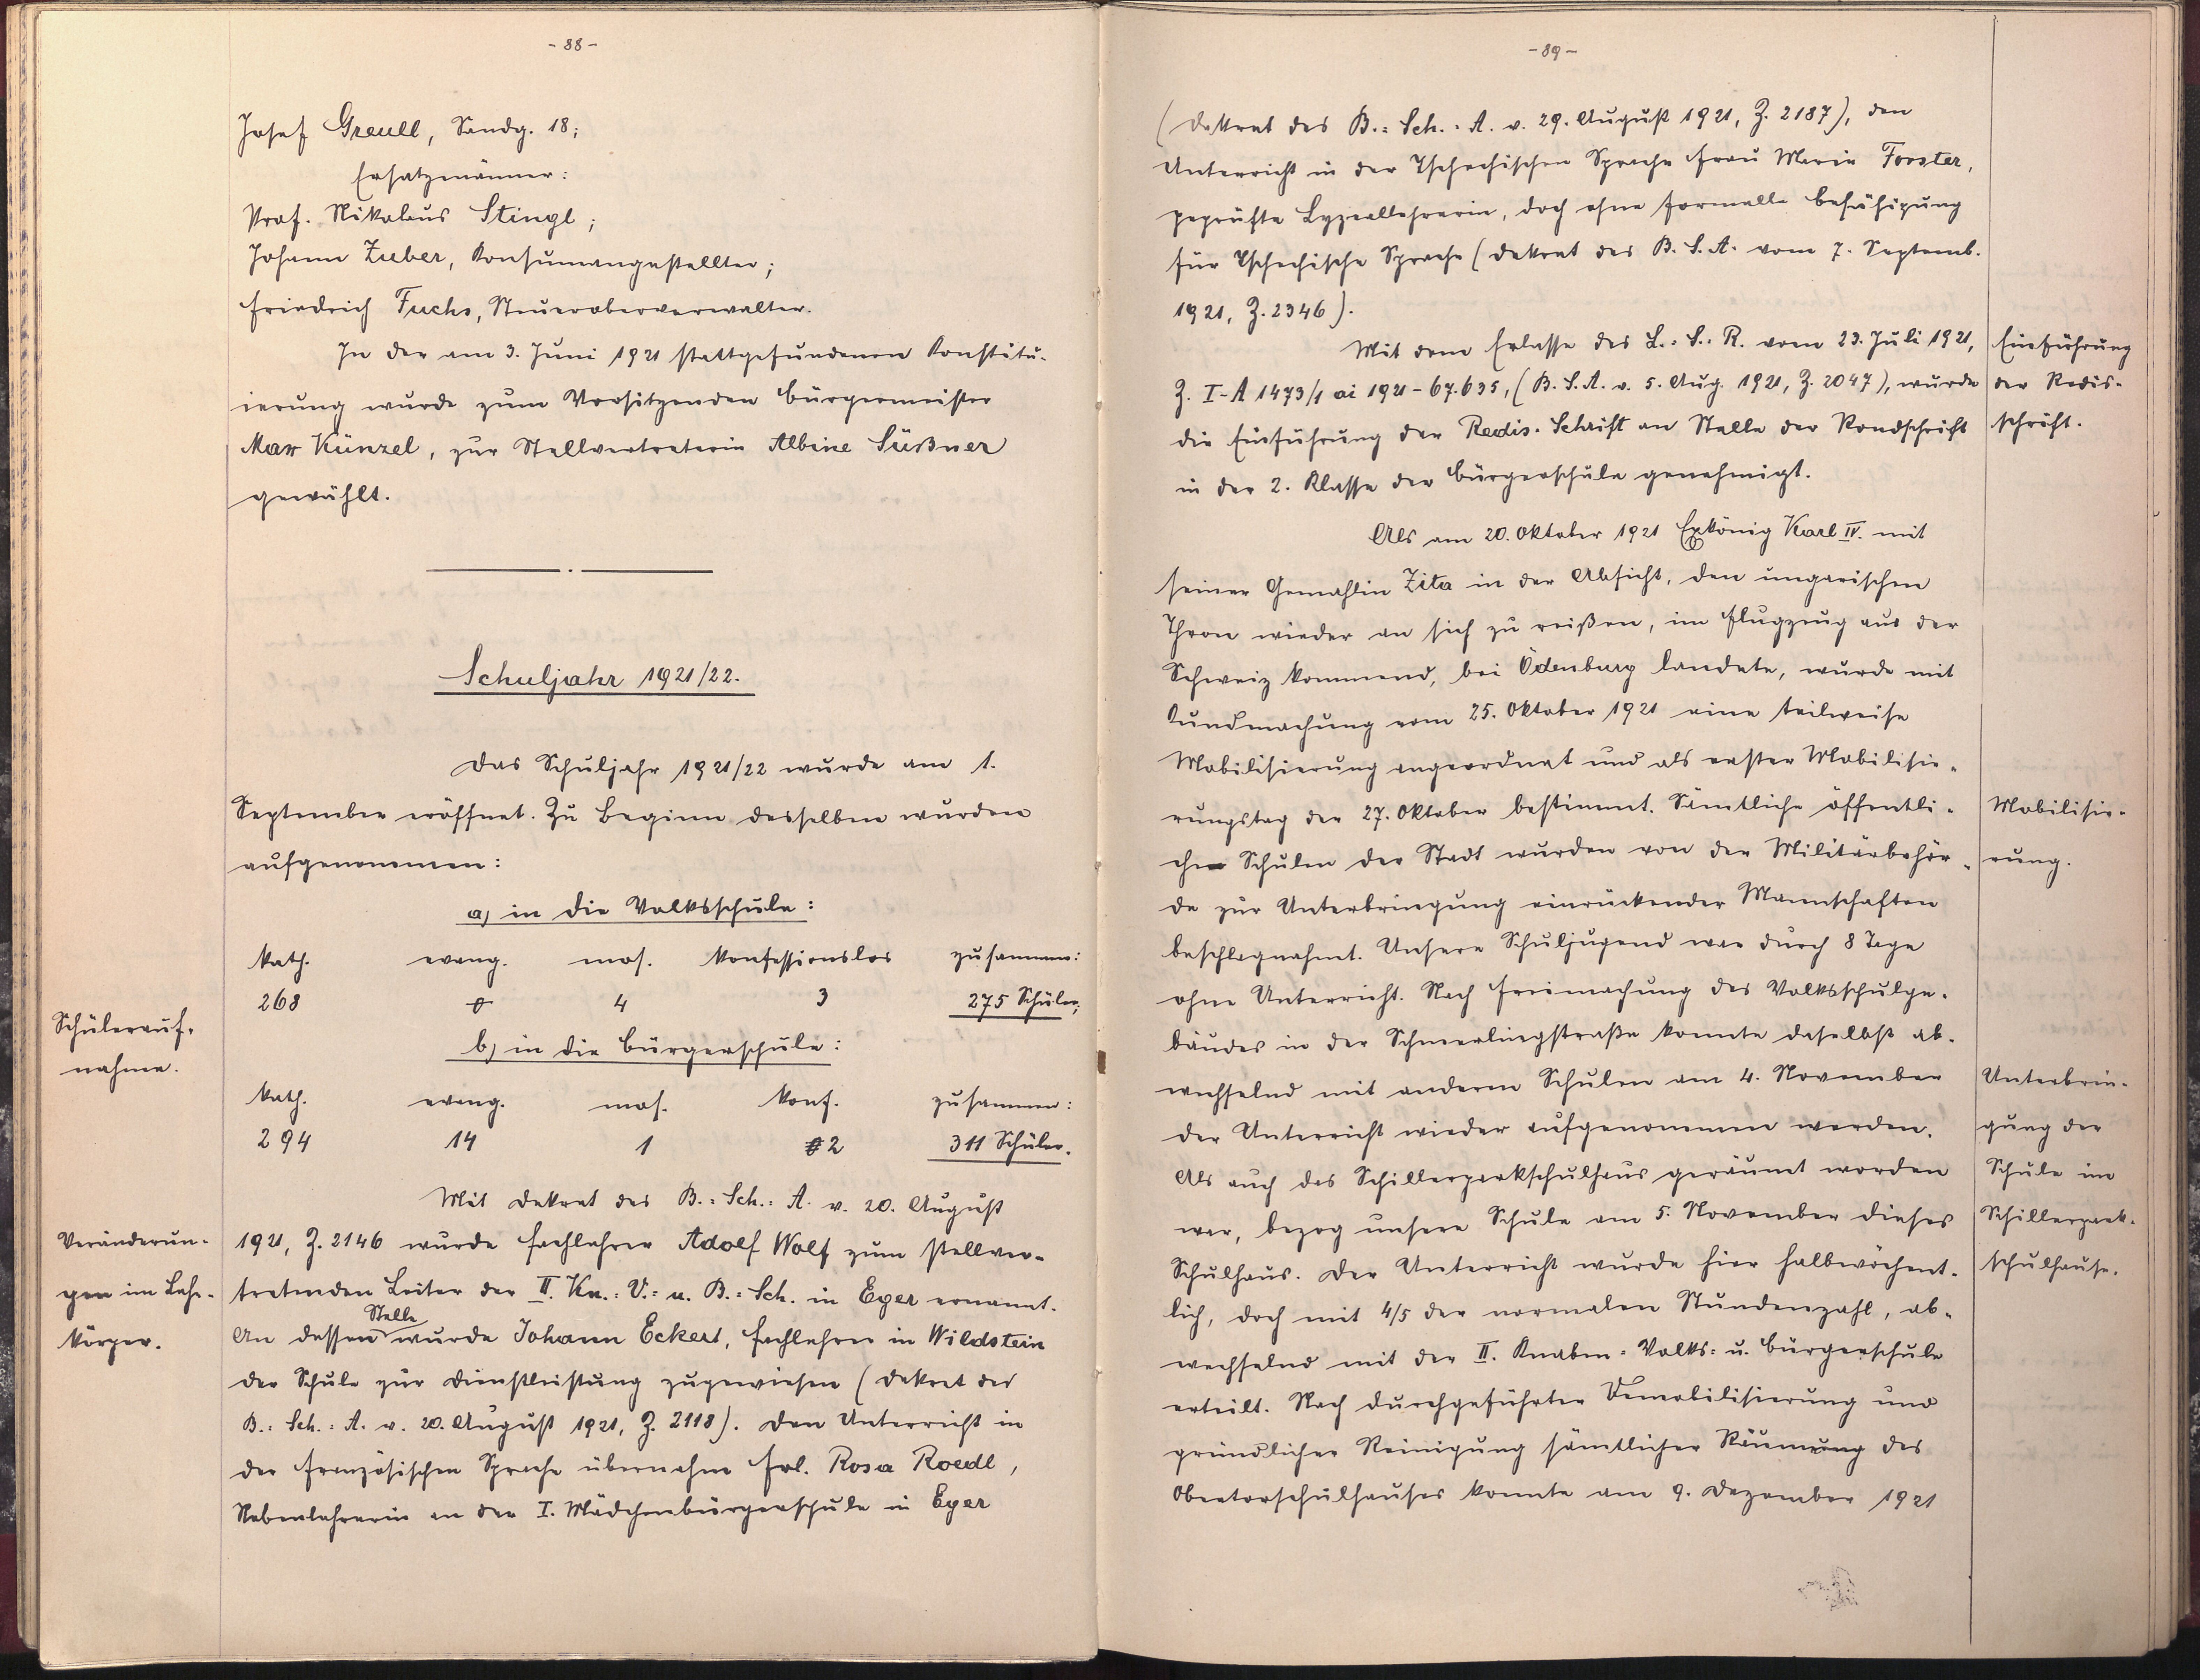 - 88 -
Josef Greull, Sandg. 18;
Ersatzmänner:
Prof. Nikolaus Stingl;
Johann Zuber, Konsumangestellter;
Friedrich Fuchs, Steueroberverwalter.
In der am 3. Juni 1921 stattgefundenen Konstitu-
ierung wurde zum Vorsitzenden Bürgermeister
Max Künzel, zur Stellvertreterin Albine Süßner
gewählt.
Schuljahr 1921/22.
Das Schuljahr 1921/22 wurde am 1.
September eröffnet. Zu Beginn desselben wurden
aufgenommen:
a) in die Volksschule:
kath. evang. mos. konfessionslos zusammen:
268 0 4 3 275 Schüler;
Schülerauf-
nahme.
b) in die Bürgerschule:
kath. evang. mos. konf. zusammen:
294 14 1 2 311 Schüler.
Mit Dekret des B.=Sch.=A. v. 20. August
Veränderun-
gen im Lehr-
körper.
1921, Z. 2146 wurde Fachlehrer Adolf Wolf zum stellver-
tretenden Leiter der II. Kn.=V.= u. B.=Sch. in Eger ernannt.
Stelle
An dessen wurde Johann Eckert, Fachlehrer in Wildstein
der Schule zur Dienstleistung zugewiesen (Dekret des
B.=Sch.=A. v. 20. August 1921, Z. 2118). Den Unterricht in
der französischen Sprache übernahm Frl. Rosa Roedl,
Nebenlehrerin an der I. Mädchenbürgerschule in Eger
- 89 -
(Dekret des B.=Sch.=A. v. 29. August 1921, Z. 2187), den
Unterricht in der tschechischen Sprache Frau Marie Forster,
geprüfte Lyzeallehrerin, doch ohne formelle Befähigung
für tschechische Sprache (Dekret des B.S.A. vom 7. Septemb.
1921, Z. 2346).
Mit dem Erlasse des L.=S.=R. vom 23. Juli 1921,
Z. I-A 1473/1 ai 1921-67.635, (B.S.A. v. 5. Aug. 1921, Z. 2047), wurde
die Einführung der Redis-Schrift an Stelle der Rondschrift
in der 2. Klasse der Bürgerschule genehmigt.
Einführung
der Redis-
schrift.
Als am 20. Oktober 1921 Exkönig Karl IV. mit
seiner Gemahlin Zita in der Absicht, den ungarischen
Thron wieder an sich zu reißen, im Flugzeug aus der
Schweiz kommend, bei Ödenburg landete, wurde mit
Kundmachung vom 25. Oktober 1921 eine teilweise
Mobilisierung angeordnet und als erster Mobilisie-
rungstag der 27. Oktober bestimmt. Sämtliche öffentli-
chen Schulen der Stadt wurden von der Militärbehör-
de zur Unterbringung einrückender Mannschaften
beschlagnahmt. Unsere Schuljugend war durch 8 Tage
ohne Unterricht. Nach Freimachung des Volksschulge-
bäudes in der Schmerlingstraße konnte daselbst ab-
wechselnd mit anderen Schulen am 4. November
der Unterricht wieder aufgenommen werden.
Als auch das Schillerparkschulhaus geräumt worden
war, bezog unsere Schule am 5. November dieses
Schulhaus. Der Unterricht wurde hier halbwöchent-
lich, doch mit 4/5 der normalen Stundenzahl, ab-
wechselnd mit der II. Knaben=Volks= u. Bürgerschule
erteilt. Nach durchgeführter Demobilisierung und
gründlicher Reinigung sämtlicher Räumung des
Obertorschulhauses konnte am 9. Dezember 1921
Mobilisie-
rung.
Unterbrin-
gung der
Schule im
Schillerpark-
schulhause.